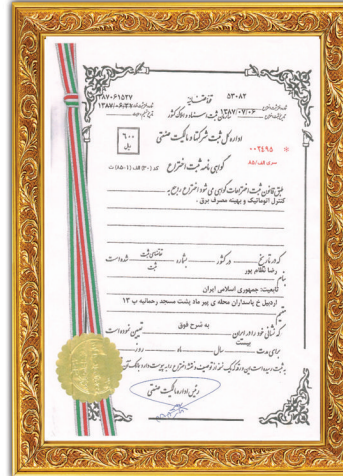 ۵۳۰۸۲
۱۳۸۷/۰۷/۰۶
اداره کل ثبت شرکتها و مالکیت صنعتی
۶۰۰
ریال
۰۰۲۴۹۵
سری الف/۸۵
گواهی نامه ثبت اختراع
طبق قانون ثبت اختراعات گواهی می شود اختراع راجع به
کنترل اتوماتیک و بهینه مصرف برق .
که در تاریخ در کشور بشماره تقاضای ثبت شده است
ثبت
بنام رضا نظام پور
تابعیت: جمهوری اسلامی ایران
اردبیل خ پاسداران محله ی پیر ماد پشت مسجد رحمانیه پ ۱۳
مقیم
که نشانی خود را در ایران به شرح فوق تعیین نموده است
برای مدت بیست سال ماه روز
رئیس اداره مالکیت صنعتی